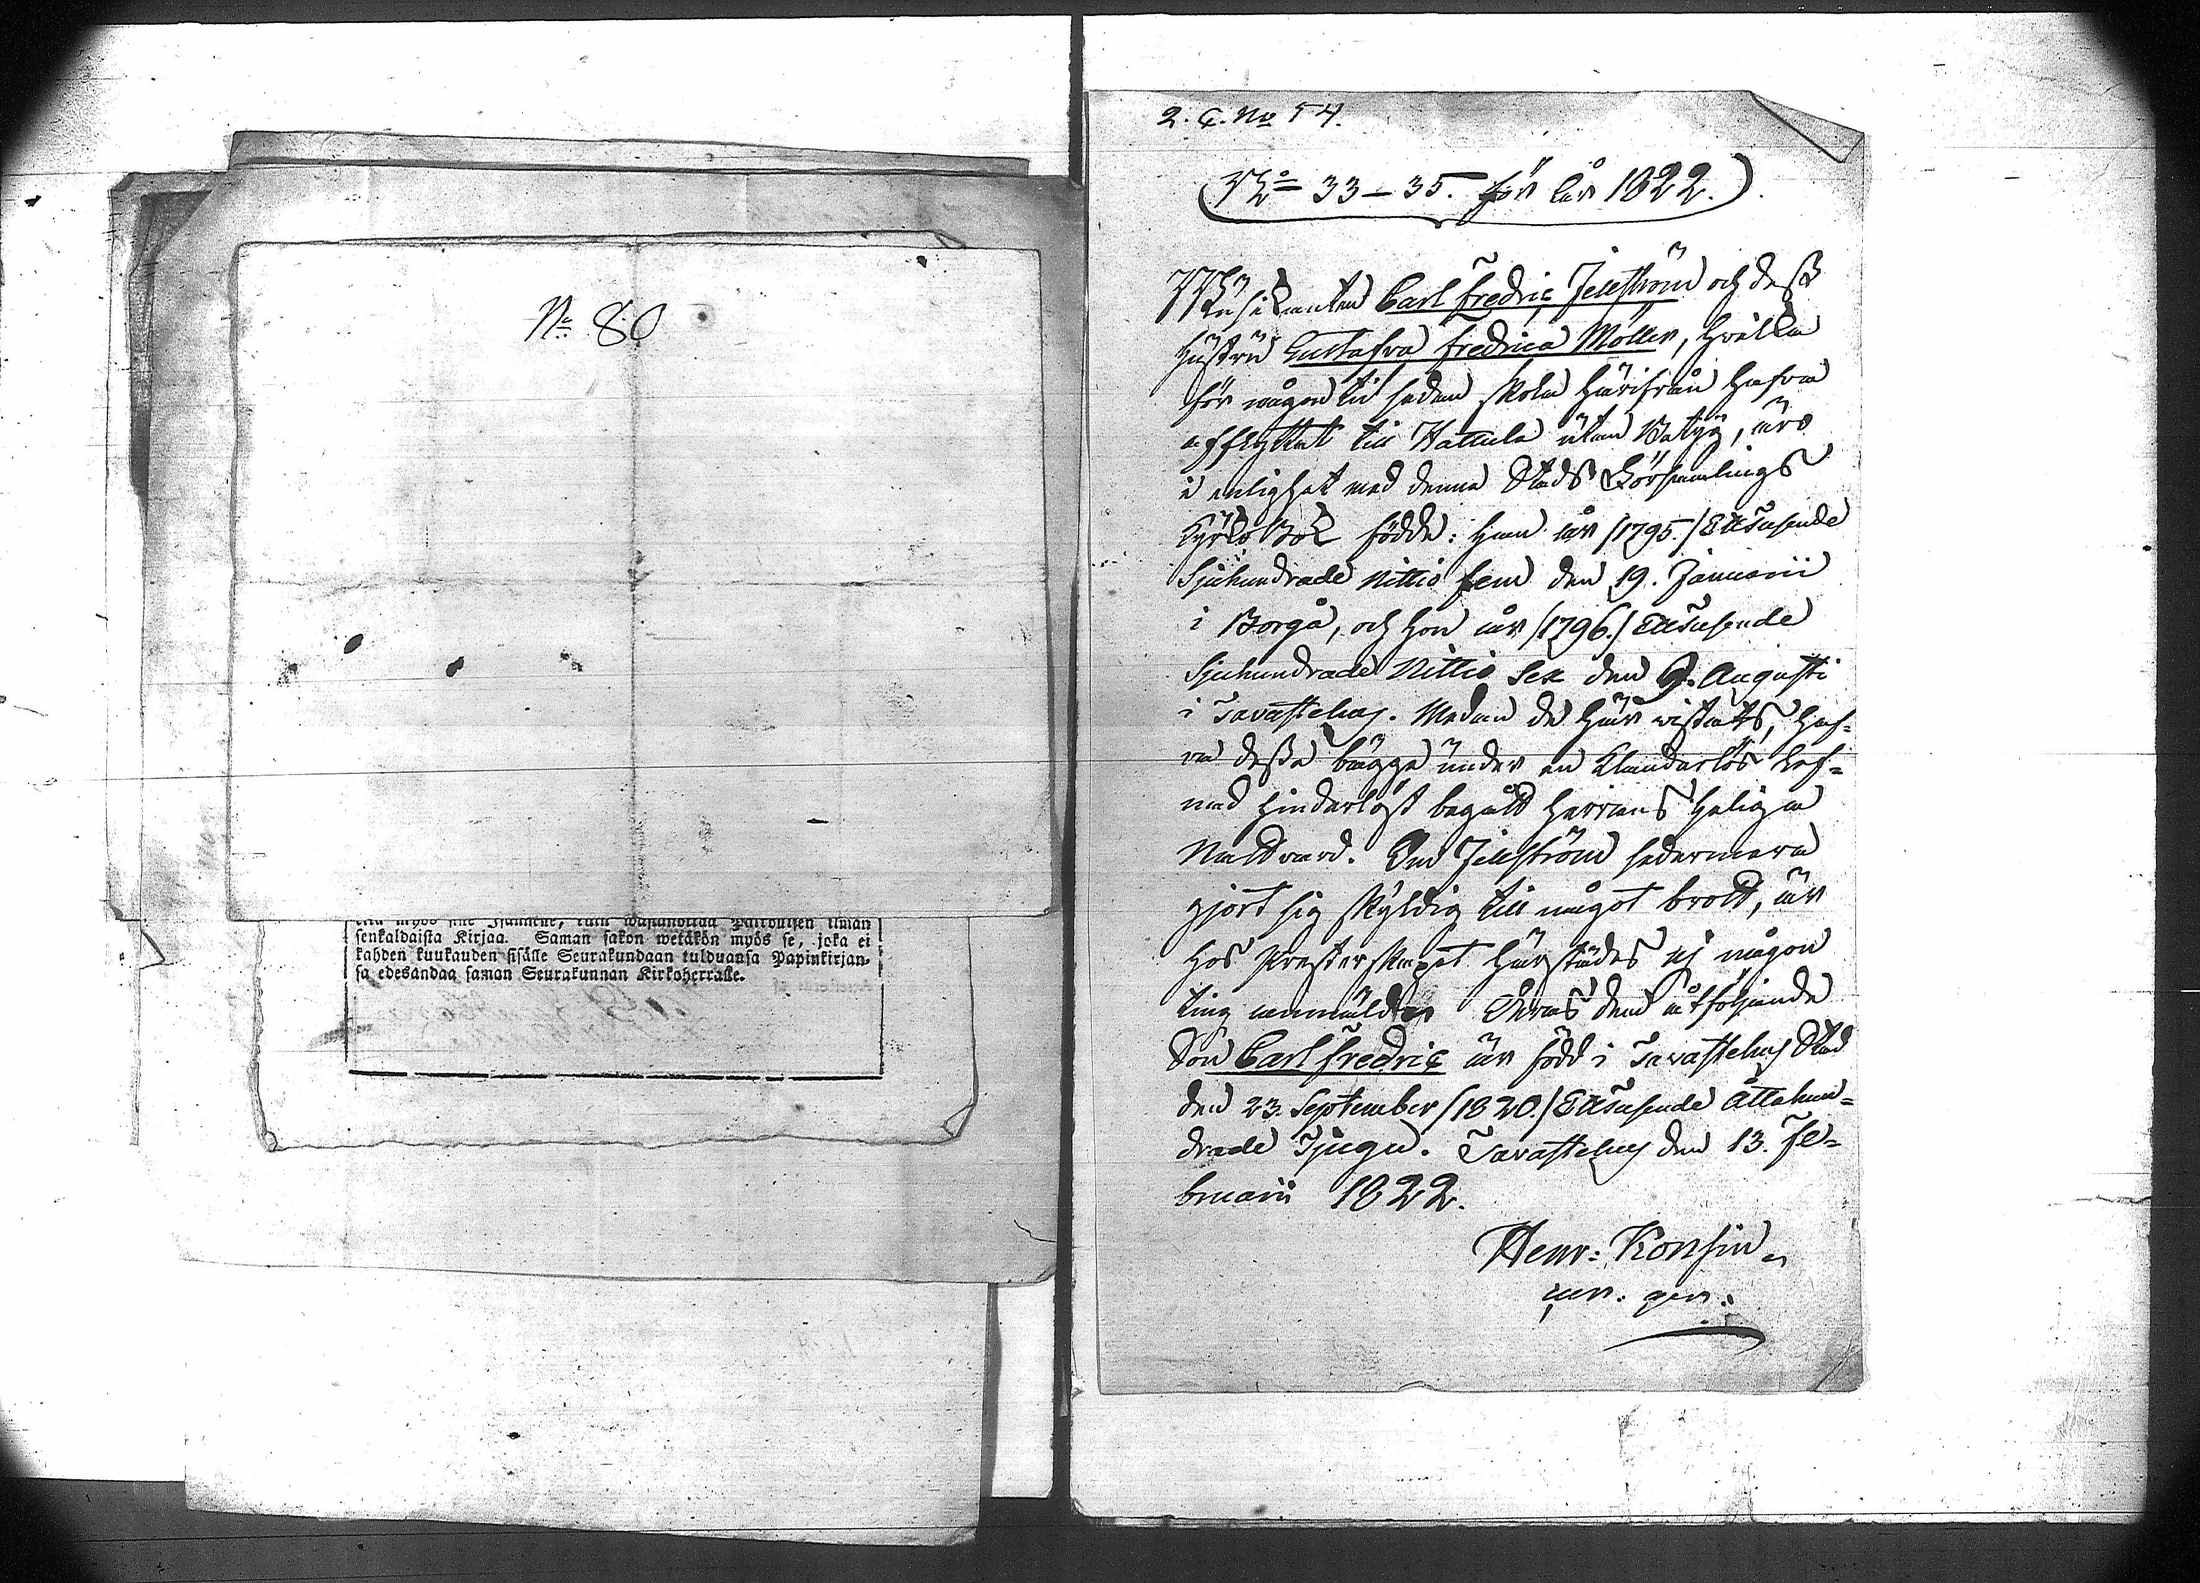 No 80
senkaldaista Kirjaa. Saman sakon wetäkön myös se, joka ei
kahden kuukauden sisälle Seurakundaan tulduansa Papinkirjan-
sa edesandaa saman Seurakunnan Kirkoherralle.
2. C. No 54.
(No 33–35. för år 1822.)
Musikanten Carl Fredric Jelström och dess
hustru Gustafva Fredrica Möller, hvilka
för någon tid sedan skola härifrån hafva
afflyttat till Hattula utan Betyg, äro
i enlighet med denna Stads Församlings
Kyrko Bok födde: han år /1795./ Ettusende
Sjuhundrade Nittio fem den 19. Januarii
i Borgå, och hon år /1796./ Ettusende
Sjuhundrade Nittio Sex den 9. Augusti
i Tavastehus. Medan de här vistats, haf-
va dessa bägge under en klanderlös lef-
nad hinderlöst begått Herrans Heliga
Nattvard. Om Jelström sedermera
gjort sig skyldig till något brott, är
hos Presterskapet härstädes ej någon
ting anmäldt. Deras dem åtföljande
Son Carl Fredric är född i Tavastehus Stad
den 23. September /1820./ Ettusende Åttahun-
drade Tjugu. Tavastehus den 13. Fe-
bruarii 1822.
Henr: Konsin